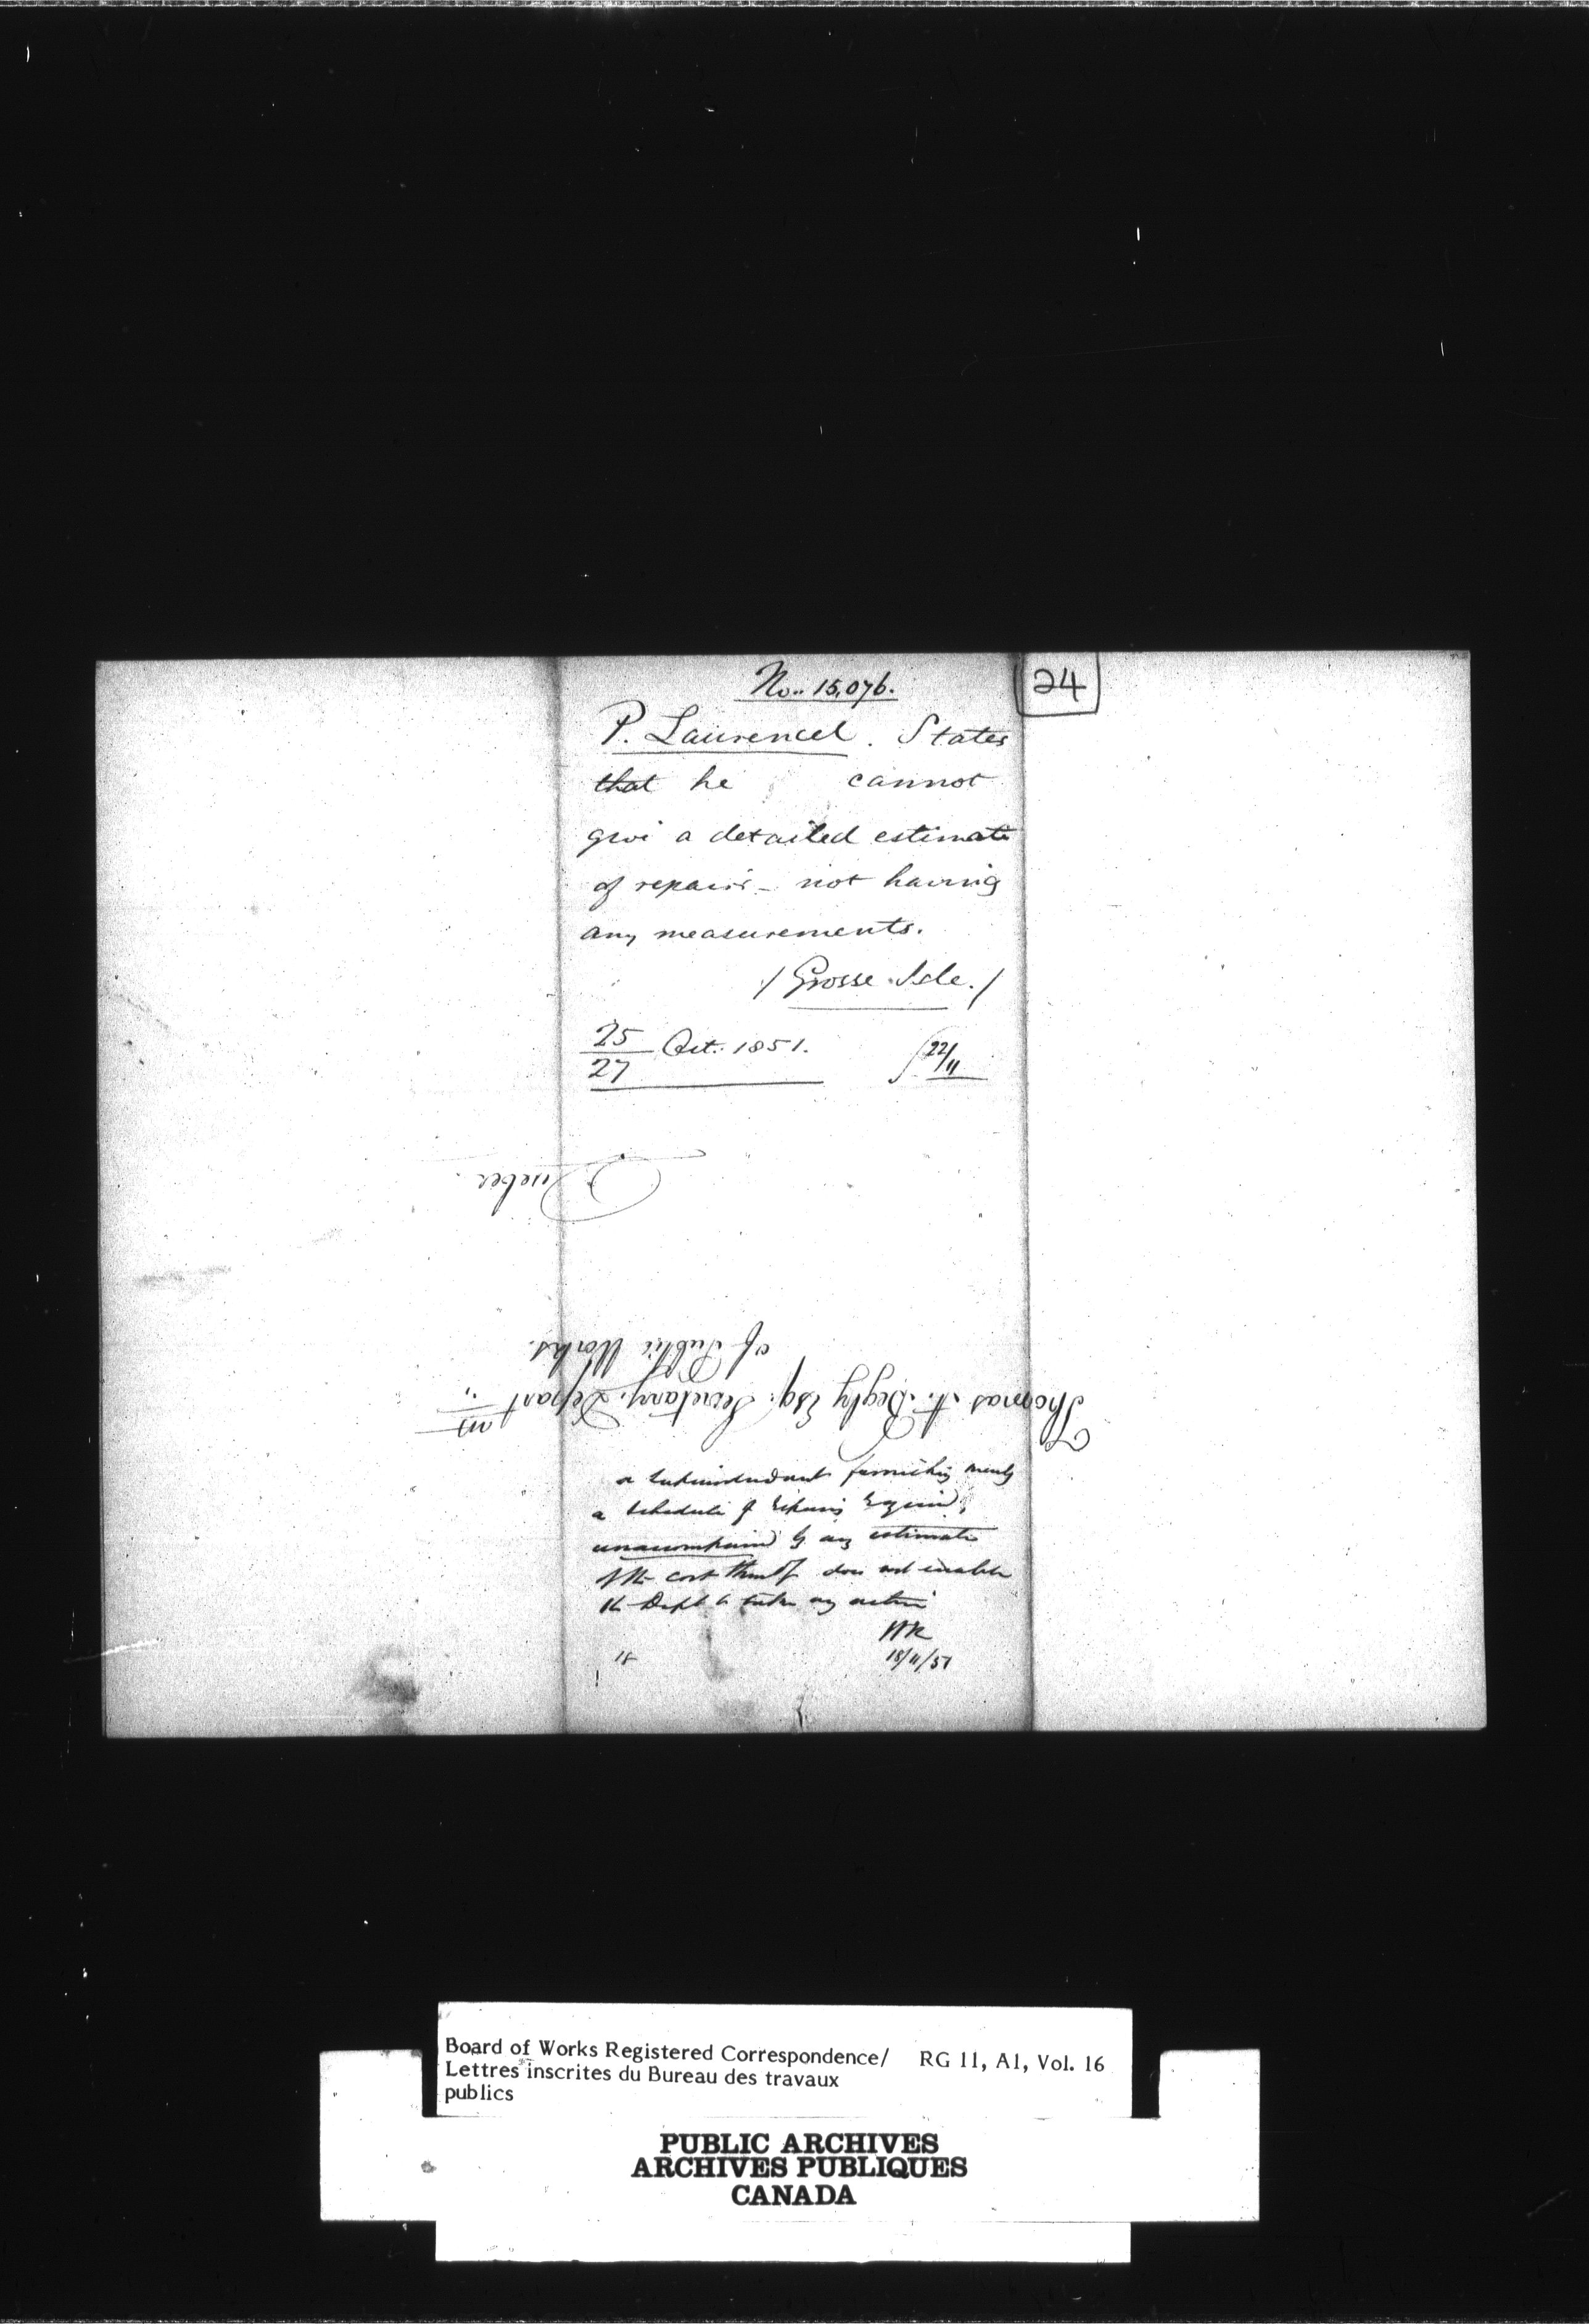 No. 15,076.
24
P. Laurencel. States
that he cannot
give a detailed estimate
of repairs - not having
any measurements.
/ Grosse Isle. /
25
27 Oct. 1851.
22/11
Quebec
Thomas A. Begly Esq. Secretary, Depart m
of Public Works.
a Superintendant furnishing merely
a schedule of repairs required,
unaccompanied by any estimate
of the cost thereof does not enable
the Dept to take any action
HK
18
18/11/51
Board of Works Registered Correspondence/ RG 11, A1, Vol. 16
Lettres inscrites du Bureau des travaux
publics
PUBLIC ARCHIVES
ARCHIVES PUBLIQUES
CANADA